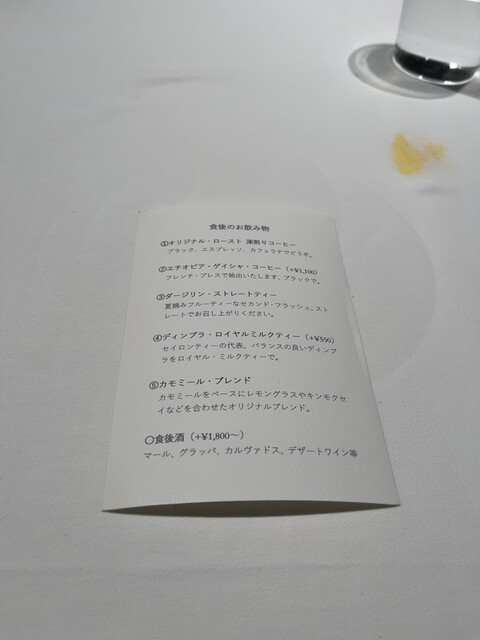 食後のお飲み物
①オリジナル・ロースト 深煎りコーヒー
ブラック、エスプレッソ、カフェラテでどうぞ。
②エチオピア・ゲイシャ・コーヒー（+¥1,100）
フレンチ・プレスで抽出いたします、ブラックで。
③ダージリン・ストレートティー
夏摘みフルーティーなセカンド・フラッシュ、スト
レートでお召し上がりください。
④ディンブラ・ロイヤルミルクティー（+¥550）
セイロンティーの代表、バランスの良いディンブ
ラをロイヤル・ミルクティーで。
⑤カモミール・ブレンド
カモミールをベースにレモングラスやキンモクセ
イなどを合わせたオリジナルブレンド。
〇食後酒（+¥1,800～）
マール、グラッパ、カルヴァドス、デザートワイン等